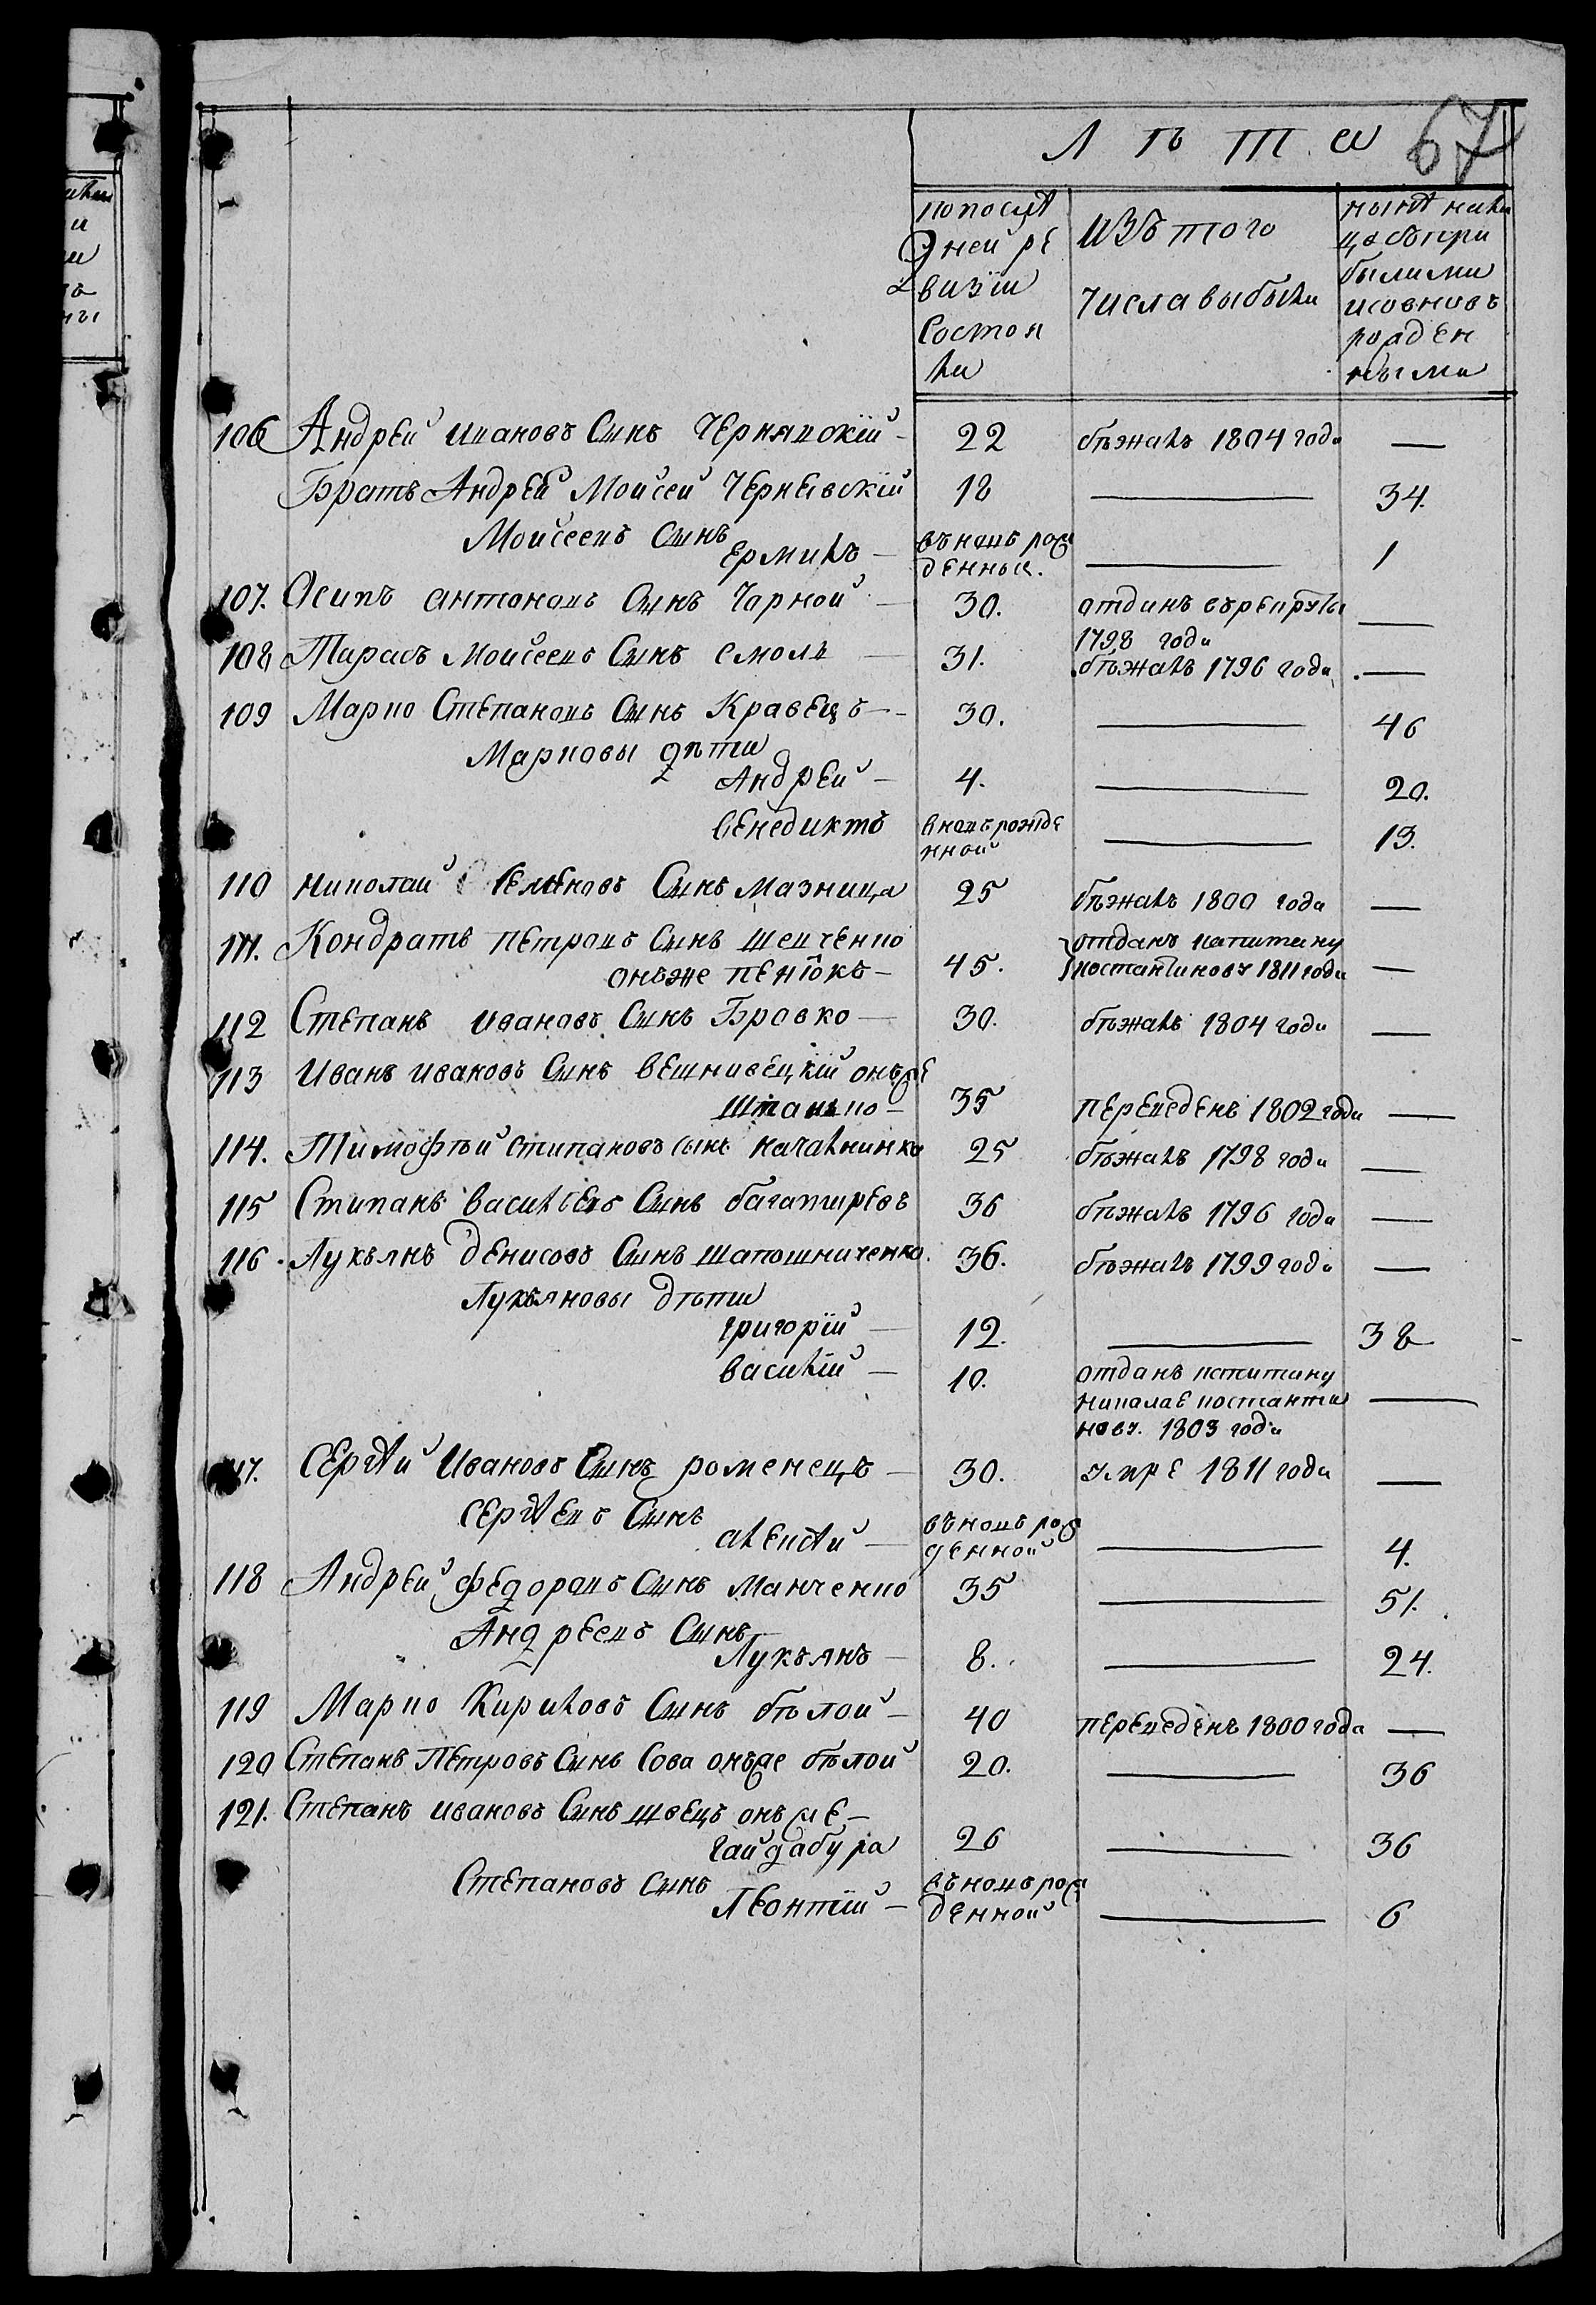 67
Лѣта
по послѣ
дней ре
визіи
состоя
ли
изъ того
числа выбыли
нынѣ на ли
цо съ при
былыми
и со вновь
рожден
ными
106 Андрей Ивановъ Сынъ Чернявскій 22 бѣжалъ 1804 года —
Братъ Андрей Моисей Чернявскій 18 — 34.
Моисеевъ Сынъ
Ермилъ — въ новъ рож
денныи. — 1
107. Осипъ Антоновъ Сынъ Чорной — 30. отданъ въ рекруты
1798 года —
108 Тарасъ Моисеевъ Сынъ Смоля — 31. бѣжалъ 1796 года —
109 Марко Степановъ Сынъ Кравецъ — 30. — 46
Марковы дѣти
Андрей — 4. — 20.
Венедиктъ въ новъ рожде
нной — 13.
110 Николай Семеновъ Сынъ Мазница 25 бѣжалъ 1800 года —
111. Кондратъ Петровъ Сынъ Шевченко
онъ же Пенюкъ — 45. отданъ капитану
Костантинову 1811 года —
112 Степанъ Ивановъ Сынъ Бровко — 30. бѣжалъ 1804 года —
113 Иванъ Ивановъ Сынъ Вешнивецкій онъ же
Штанько — 35 переведенъ 1802 года —
114. Тимофѣй Стипановъ сынъ Качалнинко 25 бѣжалъ 1798 года —
115 Стипанъ Васильевъ Сынъ Багатыревъ 36 бѣжалъ 1796 года —
116 Лукъянъ Денисовъ Сынъ Шапошниченко. 36. бѣжалъ 1799 года —
Лукъяновы дѣти
Григорій — 12. — 38
Василій — 10. отданъ капитану
Николаe Костанти
нову. 1803 года —
117. Сергѣй Ивановъ Сынъ Роменецъ — 30. умре 1811 года —
Сергѣевъ Сынъ
Алексѣй — въ новъ рож
денной — 4.
118 Андрей Федоровъ Сынъ Манченко 35 — 51.
Андреевъ Сынъ
Лукъянъ — 8. — 24.
119 Марко Кириловъ Сынъ Бѣлой — 40 переведенъ 1800 года —
120 Степанъ Петровъ Сынъ Сова онъ же Бѣлой 20. — 36
121. Степанъ Ивановъ Сынъ Швецъ онъ же —
Гайдабура 26 — 36
Степановъ Сынъ
Леонтій — въ новъ рож
денной — 6